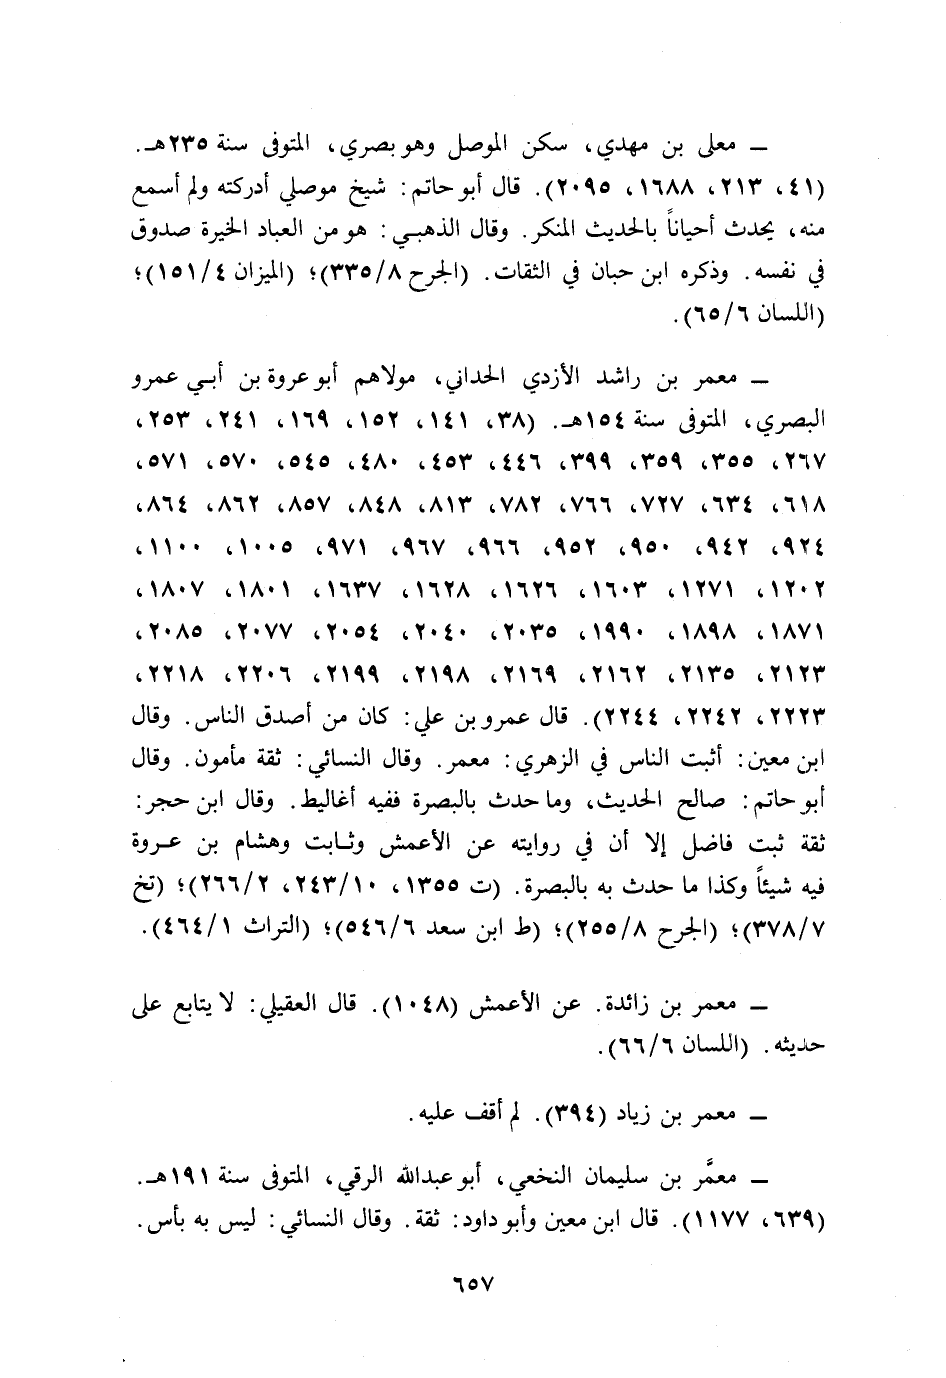 ــ معلى بن مهدي، سكن الموصل وهو بصري، المتوفى سنة ٢٣٥هـ.
(٤١، ٢١٣، ١٦٨٨، ٢٠٩٥). قال أبو حاتم: شيخ موصلي أدركته ولم أسمع
منه، يحدث أحياناً بالحديث المنكر. وقال الذهبي: هو من العباد الخيرة صدوق
في نفسه. وذكره ابن حبان في الثقات. (الجرح ٣٣٥/٨)؛ (الميزان ١٥١/٤)؛
(اللسان ٦٥/٦).
ــ معمر بن راشد الأزدي الحداني، مولاهم أبو عروة بن أبي عمرو
البصري، المتوفى سنة ١٥٤هـ. (٣٨، ١٤١، ١٥٢، ١٦٩، ٢٤١، ٢٥٣،
٢٦٧، ٣٥٥، ٣٥٩، ٣٩٩، ٤٤٦، ٤٥٣، ٤٨٠، ٥٤٥، ٥٧٠، ٥٧١،
٦١٨، ٦٣٤، ٧٢٧، ٧٦٦، ٧٨٢، ٨١٣، ٨٤٨، ٨٥٧، ٨٦٢، ٨٦٤،
٩٢٤، ٩٤٢، ٩٥٠، ٩٥٢، ٩٦٦، ٩٦٧، ٩٧١، ١٠٠٥، ١١٠٠،
١٢٠٢، ١٢٧١، ١٦٠٣، ١٦٢٦، ١٦٢٨، ١٦٣٧، ١٨٠١، ١٨٠٧،
١٨٧١، ١٨٩٨، ١٩٩٠، ٢٠٣٥، ٢٠٤٠، ٢٠٥٤، ٢٠٧٧، ٢٠٨٥،
٢١٢٣، ٢١٣٥، ٢١٦٢، ٢١٦٩، ٢١٩٨، ٢١٩٩، ٢٢٠٦، ٢٢١٨،
٢٢٢٣، ٢٢٤٢، ٢٢٤٤). قال عمرو بن علي: كان من أصدق الناس. وقال
ابن معين: أثبت الناس في الزهري: معمر. وقال النسائي: ثقة مأمون. وقال
أبو حاتم: صالح الحديث، وما حدث بالبصرة ففيه أغاليط. وقال ابن حجر:
ثقة ثبت فاضل إلا أن في روايته عن الأعمش وثابت وهشام بن عروة
فيه شيئاً وكذا ما حدث به بالبصرة. (ت ١٣٥٥، ٢٤٣/١٠، ٢٦٦/٢)؛ (تخ
٣٧٨/٧)؛ (الجرح ٢٥٥/٨)؛ (ط ابن سعد ٥٤٦/٦)؛ (التراث ٤٦٤/١).
ــ معمر بن زائدة. عن الأعمش (١٠٤٨). قال العقيلي: لا يتابع على
حديثه. (اللسان ٦٦/٦).
ــ معمر بن زياد (٣٩٤). لم أقف عليه.
ــ معمَّر بن سليمان النخعي، أبو عبدالله الرقي، المتوفى سنة ١٩١هـ.
(٦٣٩، ١١٧٧). قال ابن معين وأبو داود: ثقة. وقال النسائي: ليس به بأس.
٦٥٧